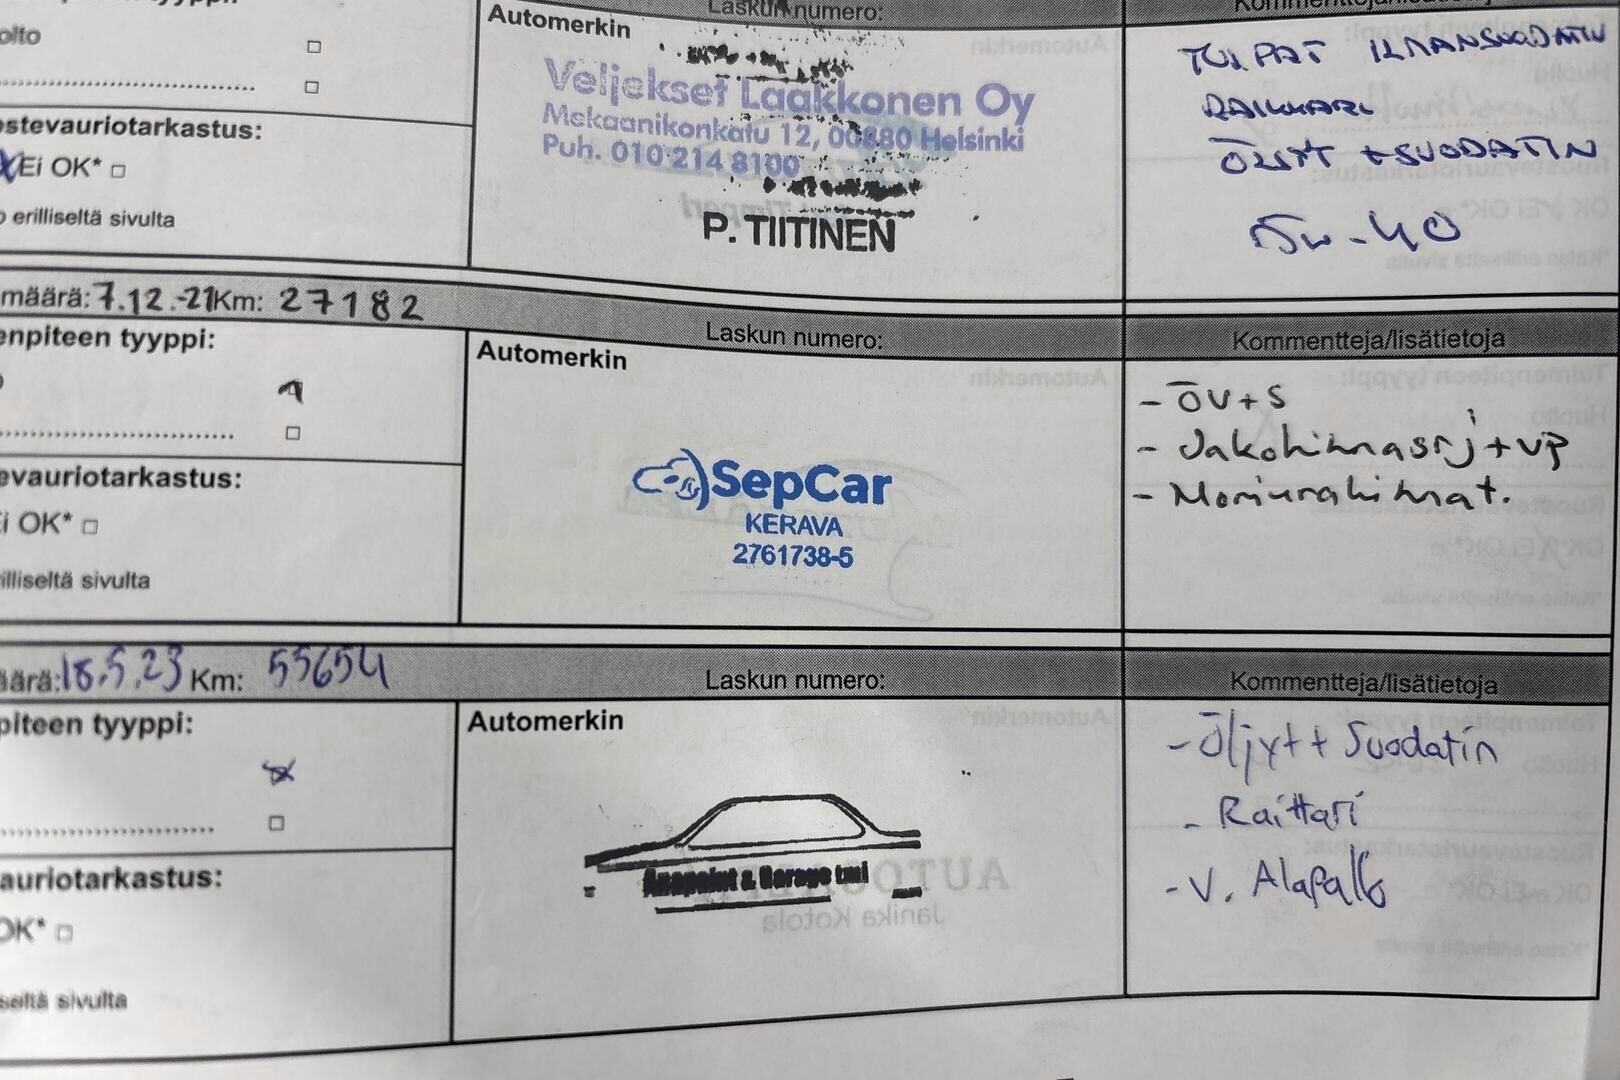 olto
Automerkin
Laskun numero:
Veljekset Laakkonen Oy
Mekaanikonkatu 12, 00880 Helsinki
Puh. 010 214 8100
P. TIITINEN
TULPAT ILMANSUODATIN
RAIKKARI
ÖLJYT + SUODATIN
5w-40
ostevauriotarkastus:
Ei OK*
o erilliseltä sivulta
määrä: 7.12.-21 Km: 27182
Laskun numero:
Kommentteja/lisätietoja
enpiteen tyyppi:
Automerkin
SepCar
KERAVA
2761738-5
- ÖV+S
- Jakohihnasrj + VP
- Moniurahihnat.
evauriotarkastus:
i OK*
illiseltä sivulta
äärä: 18.5.23 Km: 55654
Laskun numero:
Kommentteja/lisätietoja
piteen tyyppi:
Automerkin
& Garage tmi
- Öljyt + Suodatin
- Raittari
- V. Alapallo
auriotarkastus:
OK*
seltä sivulta